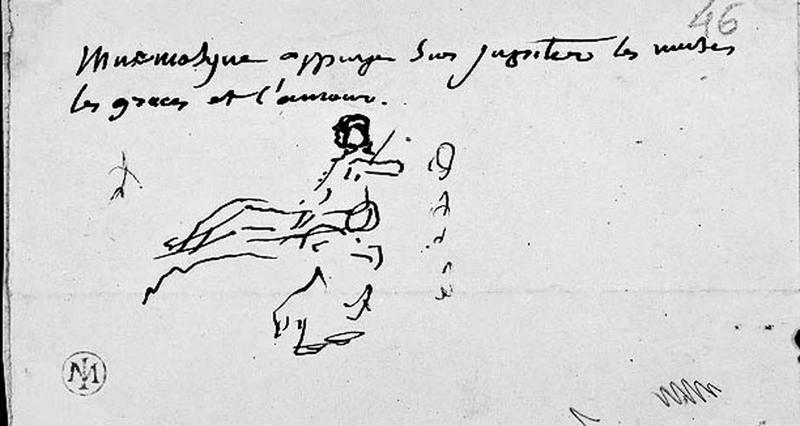 46
Mnemosyne appuyee sur Jupiter les muses
les graces et l'amour.
IM